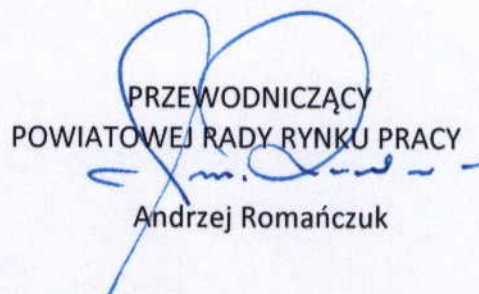 PRZEWODNICZĄCY
POWIATOWEJ RADY RYNKU PRACY
Andrzej Romańczuk